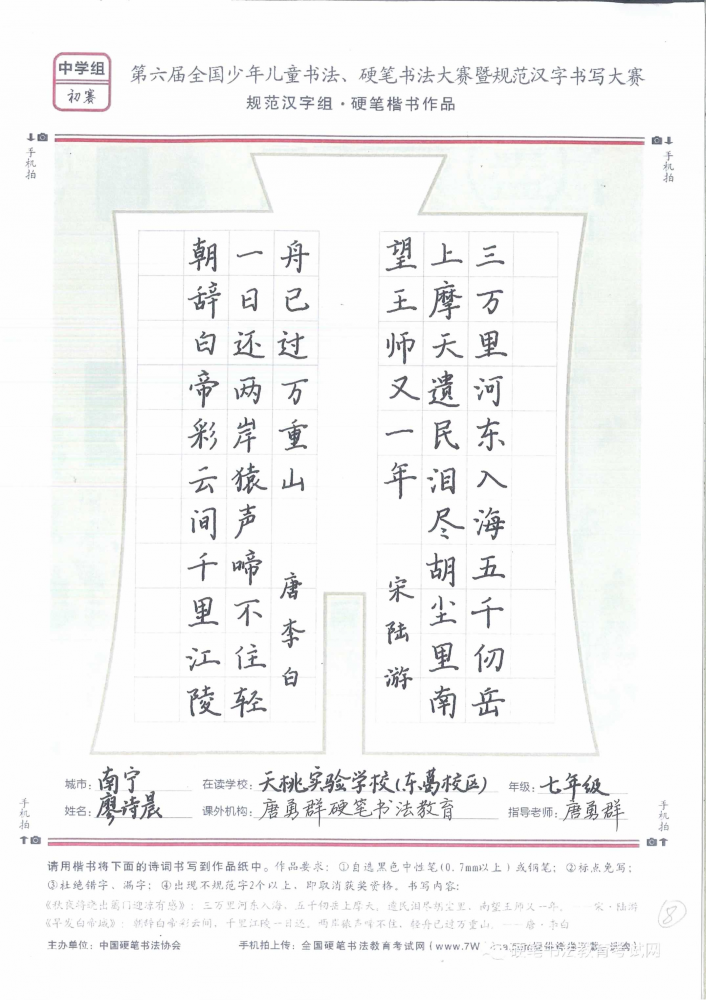 中学组
初赛
第六届全国少年儿童书法、硬笔书法大赛暨规范汉字书写大赛
规范汉字组·硬笔楷书作品
手机拍
手机拍
三万里河东入海五千仞岳
上摩天遗民泪尽胡尘里南
望王师又一年 宋陆游
朝辞白帝彩云间千里江陵
一日还两岸猿声啼不住轻
舟已过万重山 唐李白
城市：南宁 在读学校：天桃实验学校(东葛校区) 年级：七年级
姓名：廖诗晨 课外机构：唐勇群硬笔书法教育 指导老师：唐勇群
手机拍
手机拍
请用楷书将下面的诗词书写到作品纸中。作品要求：①自选黑色中性笔(0.7mm以上)或钢笔；②标点免写；
③杜绝错字、漏字；④出现不规范字2个以上，即取消获奖资格。书写内容：
《秋夜将晓出篱门迎凉有感》：三万里河东入海，五千仞岳上摩天。遗民泪尽胡尘里，南望王师又一年。——宋·陆游
《早发白帝城》：朝辞白帝彩云间，千里江陵一日还。两岸猿声啼不住，轻舟已过万重山。——唐·李白
⑧
主办单位：中国硬笔书法协会 手机拍上传：全国硬笔书法教育考试网(www.7W
硬笔书法教育考试网